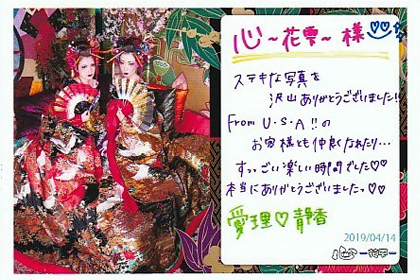 心～花雫～ 様♡♡
ステキな写真を
沢山ありがとうございました!!
From U・S・A!!の
お客様とも仲良くなれたり…
すっごい楽しい時間でした♡♡
本当にありがとうございましたっ♡♡
愛理♡静香
2019/04/14